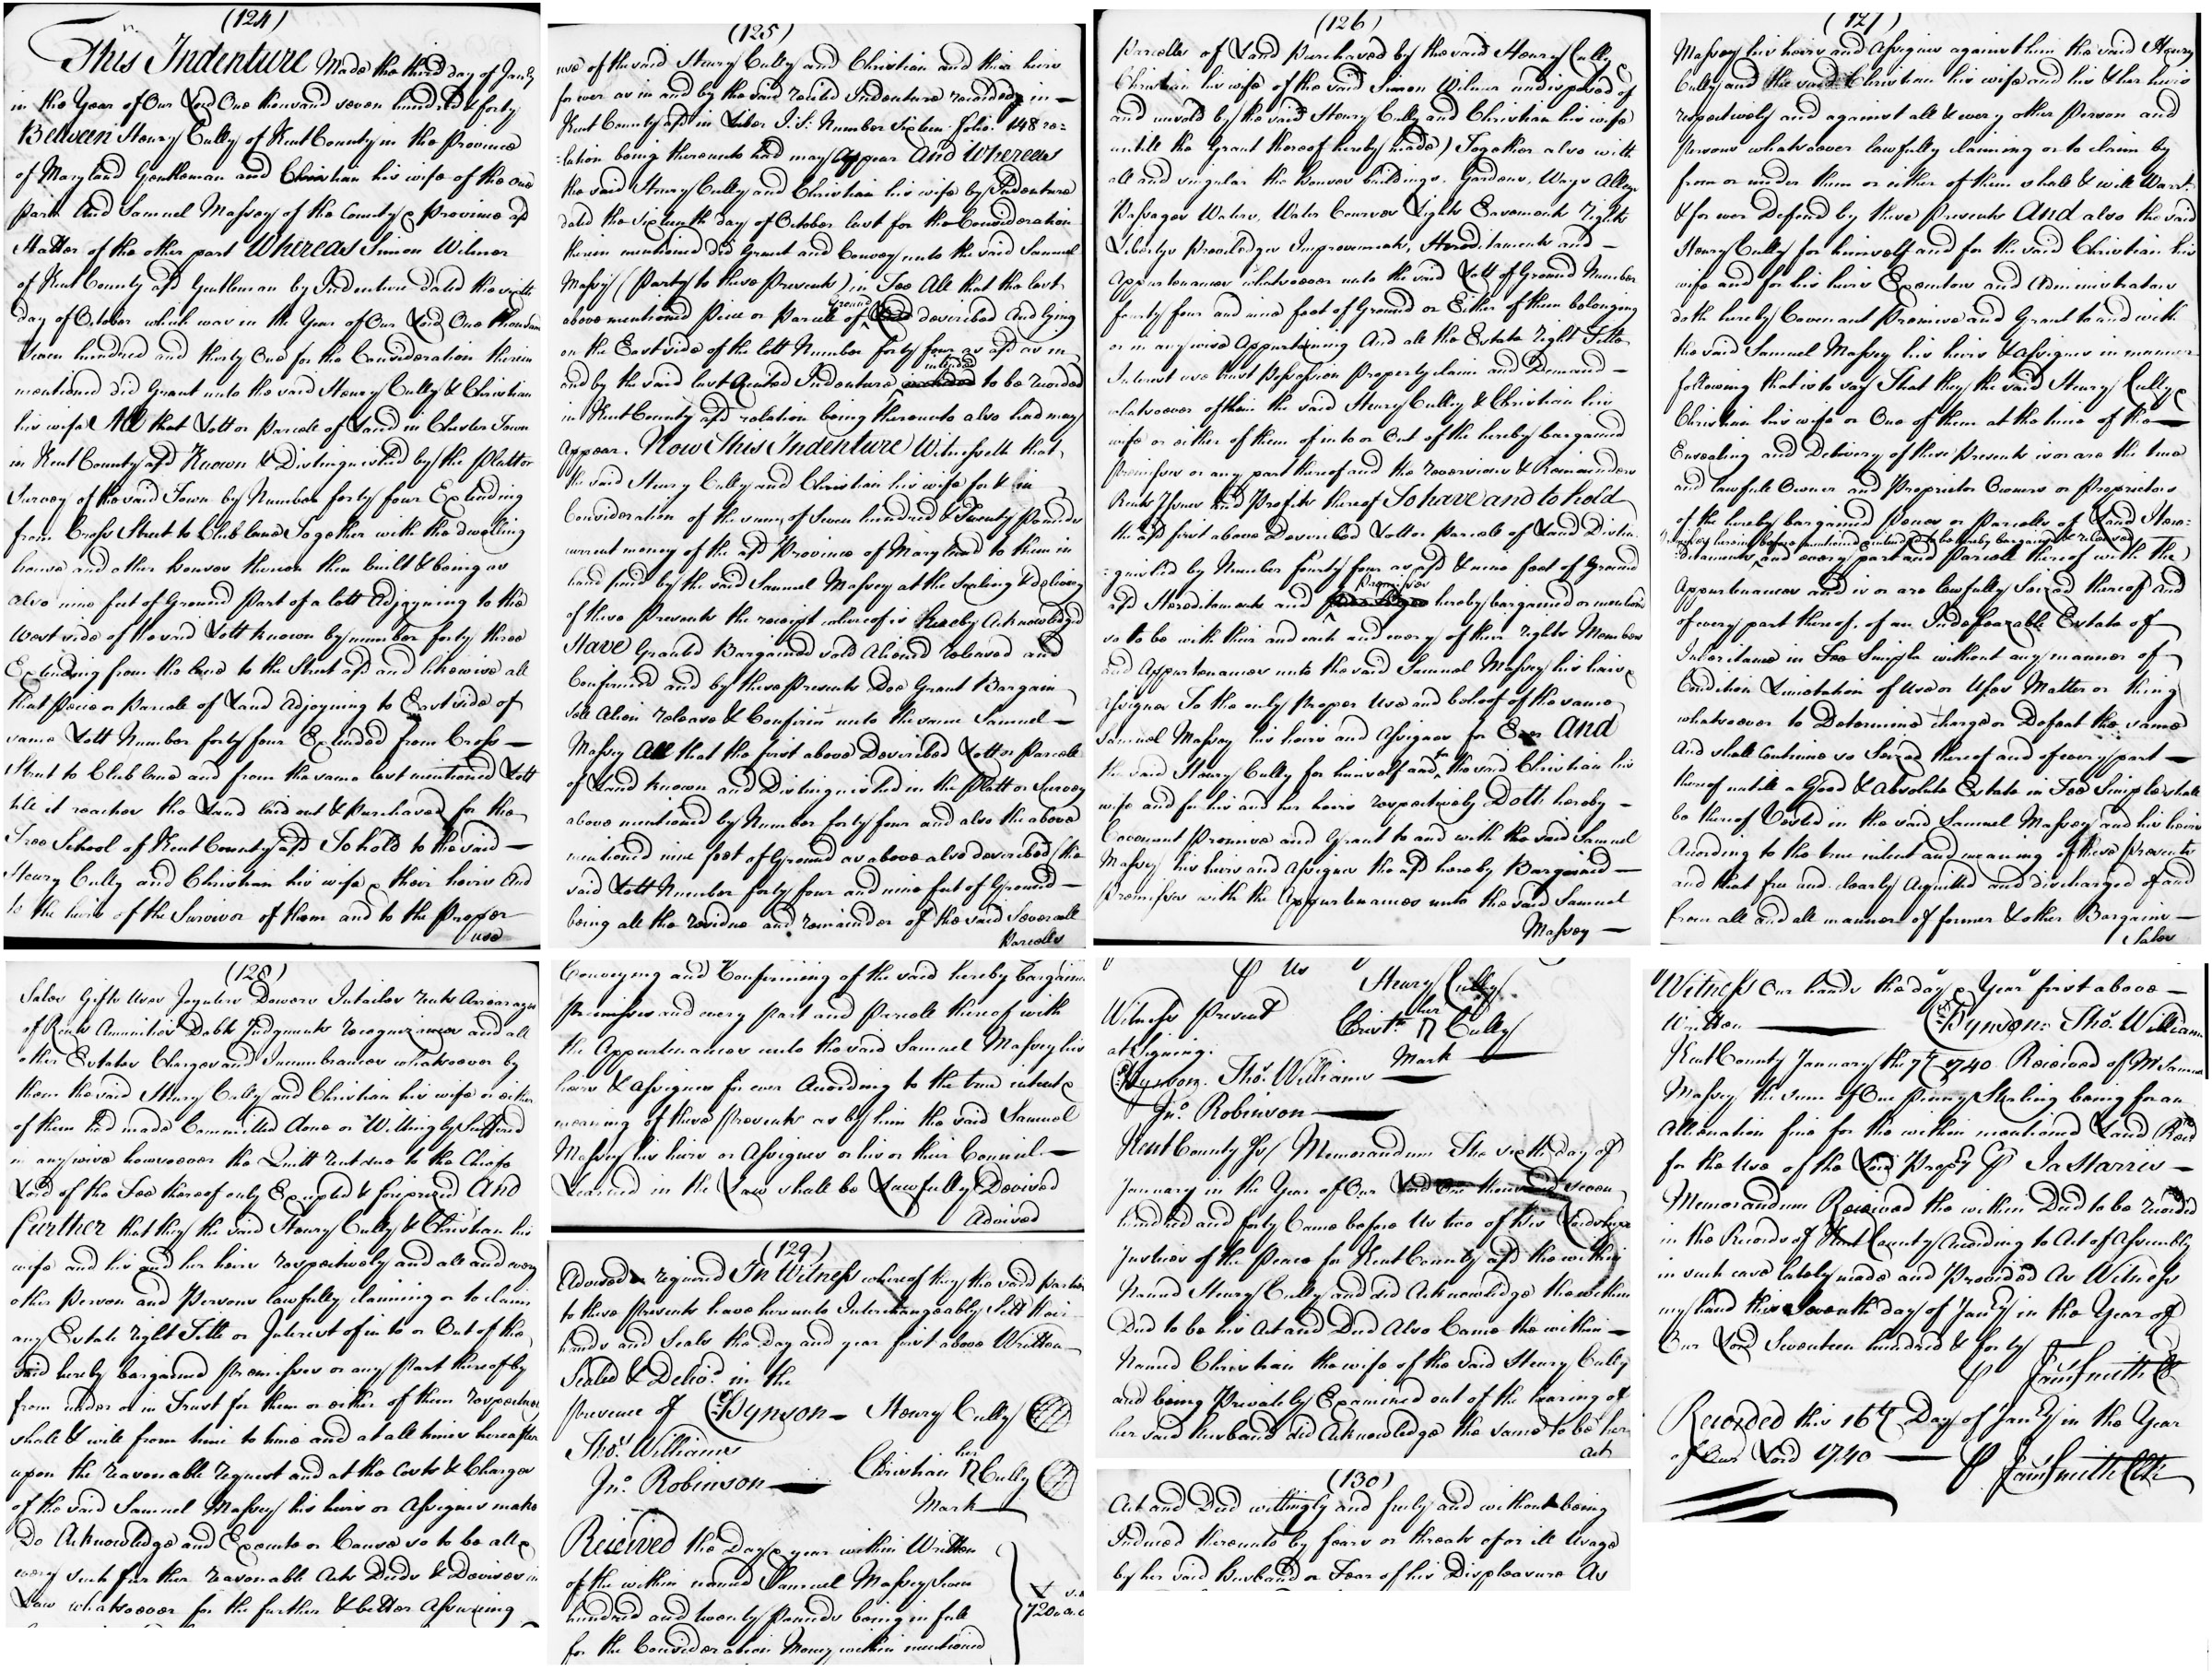 (124)
This Indenture Made the third day of Janry
in the Year of Our Lord One thousand seven hundred & forty
Between Henry Cully of Kent County in the Province
of Maryland Gentleman and Christian his wife of the one
part And Samuel Massey of the County & Province afd
Hatter of the other part Whereas Simon Wilmer
of Kent County afd Gentleman by Indenture dated the
day of October which was in the Year of Our Lord One thousand
seven hundred and thirty One for the Consideration therein
mentioned did Grant unto the said Henry Cully & Christian
his wife All that Lott or Parcele of Land in Chester Town
in Kent County afd Known & Distinguished by the Platt or
Survey of the said Town by Number forty four Extending
from Cross Street to Club lane Together with the dwelling
house and other houses thereon then built & being as
also nine feet of Ground Part of a lott Adjoyning to the
West side of the said Lott known by number forty three
Extending from the lane to the Street afd and likewise all
that Peice or Parcele of Land Adjoyning to East side of
same Lott Number forty four Extended from Cross
Street to Club lane and from the same last mentioned Lott
till it reaches the Land laid out & Purchased for the
Free School of Kent County afd To hold to the said
Henry Cully and Christian his wife & their heirs And
to the heirs of the Survivor of them and to the Proper
use
(125)
use of the said Henry Cully and Christian and their heirs
for ever as in and by the said recited Indenture recorded in
Kent County afd in Liber J.S. Number Sixteen folio. 148 re=
=lation being thereunto had may Appear And Whereas
the said Henry Cully and Christian his wife by Indenture
dated the Sixteenth day of October last for the Consideration
therein mentioned did Grant and Convey unto the said Samuel
Massey (Party to these Presents) in Fee All that the last
above mentioned Piece or Parcele of Ground described And lying
on the East side of the lott Number forty four as afd as in
and by the said last Recited Indenture intended to be recorded
in Kent County afd relation being thereunto also had may
Appear. Now This Indenture Witnesseth that
the said Henry Cully and Christian his wife for & in
Consideration of the sum of Seven hundred & Twenty Pounds
current money of the afd Province of Maryland to them in
hand paid by the said Samuel Massey at the Sealing & delivery
of these Presents the receipt whereof is hereby Acknowledged
Have Granted Bargained sold Aliened released and
Confirmed and by these Presents Doe Grant Bargain
sell Alien release & Confirm unto the same Samuel
Massey All that the first above Described Lott or Parcele
of Land known and Distinguished in the Platt or Survey
above mentioned by Number forty four and also the above
mentioned nine foot of Ground as above also described (the
said Lott Number forty four and nine feet of Ground
being all the residue and remainder of the said Severall
Parcells
(126)
Parcells of Land Purchased by the said Henry Cully &
Christian his wife of the said Simon Wilmer undisposed of
and unsold by the said Henry Cully and Christian his wife
untill the Grant thereof hereby made) Together also with
all and singular the houses buildings, Gardens, Ways Alleys
Passages Waters, Water Courses Lights Easements rights
Libertys Priveledges Improvements, Hereditaments and
Appurtenances whatsoever unto the said Lott of Ground Number
fourty four and nine foot of Ground or Either of them belonging
or in any wise Appurtaining And all the Estate Right Title
Interest use trust Possession Property claim and Demand
whatsoever of them the said Henry Culley & Christian his
wife or either of them of into or Out of the hereby bargained
Premisses or any part thereof and the reversions & Remainders
Rents Issues And Profits thereof To have and to hold
the afd first above Described Lott or Parcele of Land Distin
=guished by Number fourty four as afd & nine foot of Ground
afd Hereditaments and Premisses hereby bargained or mention
so to be with their and each and every of their rights Members
and Appurtenances unto the said Samuel Massey his heirs &
Assignes To the only Proper Use and behoof of the same
Samuel Massey his heirs and Assignes for Ever And
the said Henry Cully for himself and for the said Christian his
wife and for his and her heirs respectively Doth hereby
Covenant Promise and Grant to and with the said Samuel
Massey his heirs and Assignes the afd hereby Bargained
Premisses with the Appurtenances unto the said Samuel
Massey
(127)
Massey his heirs and Assignes against him the said Henry
Cully and the said Christian his wife and his & her heirs
respectively and against all & every other Person and
Persons whatsoever lawfully claiming or to claim by
from or under them or either of them shall & will Warrt.
& for ever Defend by these Presents And also the said
Henry Cully for himself and for the said Christian his
wife and for his heirs Executors and Administrators
doth hereby Covenant Promise and Grant to and with
the said Samuel Massey his heirs & Assignes in manner
following that is to say That they the said Henry Cully &
Christian his wife or One of them at the time of the
Ensealing and Delivery of these Presents is or are the true
and lawfull Owner and Proprietor Owners or Proprietors
of the hereby bargained Peices or Parcells of Land Here=
herein before mentioned intended to be hereby bargained & released
ditaments and every part and Parcell thereof with the
Appurtenances and is or are lawfully Seized thereof and
of every part thereof, of an Indefeazable Estate of
Inheritance in Fee Simple without any manner of
Condition Limitation of Use or Uses Matter or thing
whatsoever to Determine charge or Defeat the same
And shall continue so Seized thereof and of every part
thereof untill a Good & absolute Estate in Fee Simple shall
be thereof Vested in the said Samuel Massey and his heirs
According to the true intent and meaning of these Presents
and that free and clearly Acquitted and discharged of and
from all and all manner of former & other Bargains
Sales
(128)
Sales Gifts Uses Joynters Dowers Intailes rents Arrearages
of Rents Annuities Debts Judgments recognizances and all
other Estates Charges and Incumbrances whatsoever by
them the said Henry Cully and Christian his wife or either
of them had made Committed done or Willingly Suffered
in any wise howsoever the Quitt rent due to the Cheife
Lord of the Fee thereof only Excepted & foreprized And
further that they the said Henry Cully & Christian his
wife and his and her heirs respectively and all and every
other Person and Persons lawfully claiming or to claim
any Estate right Title or Interest of in to or Out of the
said hereby bargained Premisses or any Part thereof by
from under or in Trust for them or either of them respectively
shall & will from time to time and at all times hereafter
upon the reasonable request and at the Costs & Charges
of the said Samuel Massey his heirs or Assignes make
Do Acknowledge and Execute or Cause so to be all &
every such further reasonable Acts Deeds & Devises in
Law whatsoever for the further & better Assureing
Conveying and Confirming of the said hereby bargained
Premisses and every part and Parcele thereof with
the Appurtenances unto the said Samuel Massey his
heirs & Assignes for ever According to the true intent &
meaning of these Presents as by him the said Samuel
Massey his heirs or Assignes or his or their Councill
Learned in the Law shall be Lawfully Devised
Advised
(129)
Advised or required In Witness whereof they the said parties
to these Presents have hereunto Interchangeably Sett their
hands and Seals the Day and year first above Written
Sealed & Delivd. in the
presence of C Hynson Henry Cully
Thos. Williams her
Jno. Robinson Christian Cully
Mark
Received the Day & year within Written
of the within named Samuel Massey Seven
hundred and twenty Pounds being in full
for the Consideration Money within mentioned
720
P Us Henry Cully.
Witness Present her
at Signing. Christn Cully
C Hynson. Thos. Williams Mark
Jno. Robinson
Kent County Ss/ Memorandum The sixth day of
January in the Year of Our Lord One thousand seven
hundred and forty Came before Us two of his Lordships
Justices of the Peace for Kent County afd the within
Named Henry Cully and did Acknowledge the within
Deed to be his Act and Deed Also Came the within
Named Christian the wife of the said Henry Cully
and being Privately Examined out of the hearing of
her said husband did Acknowledge the same to be her
act
(130)
Act and Deed willingly and freely and without being
Induced thereunto by fears or threats of or ill Usage
by her said husband or Fear of his Displeasure As
Witness Our hands the day & Year first above
Written C Hynson: Thos. Williams
Kent County January the 7th 1740. Received of Mr Samuel
Massey the sum of One Penny Sterling being for an
Allienation fine for the within mentioned Land Recd
for the Use of the Lord Propry P Ja Harris
Memorandum Received the within Deed to be recorded
in the Records of Kent County According to Act of Assembly
in such case lately made and Provided As Witness
my hand this Seventh day of Janry in the Year of
Our Lord Seventeen hundred & forty
P Jams Smith Clk
Recorded this 16th Day of Janry in the Year
of Our Lord 1740 P Jams Smith Clk